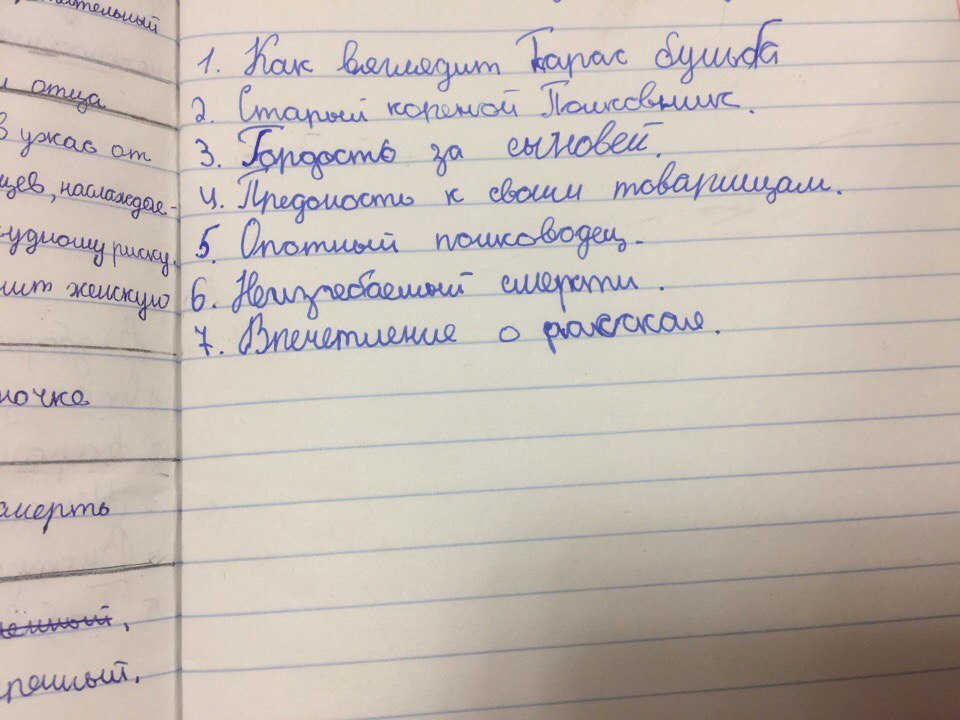 отца
в ужас от
наслаждае-
риску.
женскую
смерть
1. Как вяглядит Тарас бульба
2. Старый кореной Полковник.
3. Гордость за сыновей.
4. Предоность к своим товарищам.
5. Опотный полководец.
6. Неизгебаемый смерти.
7. Впечетление о расскале.